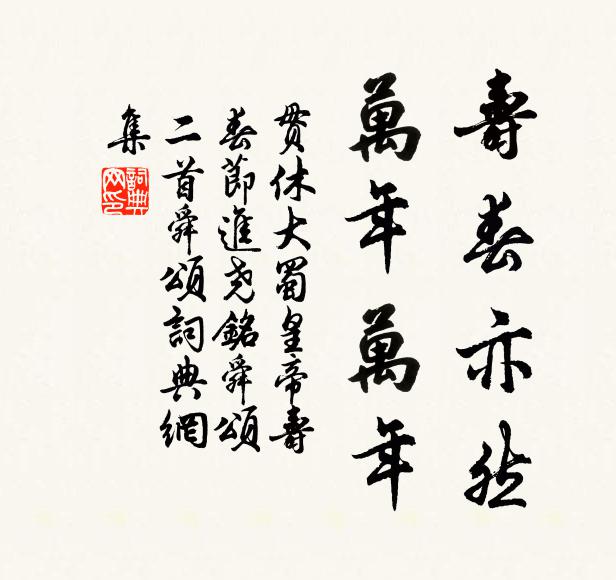 壽春亦然
萬年萬年
貫休大蜀皇帝壽
春節進尧銘舜頌
二首舜頌詞典網
集
詞典
网印